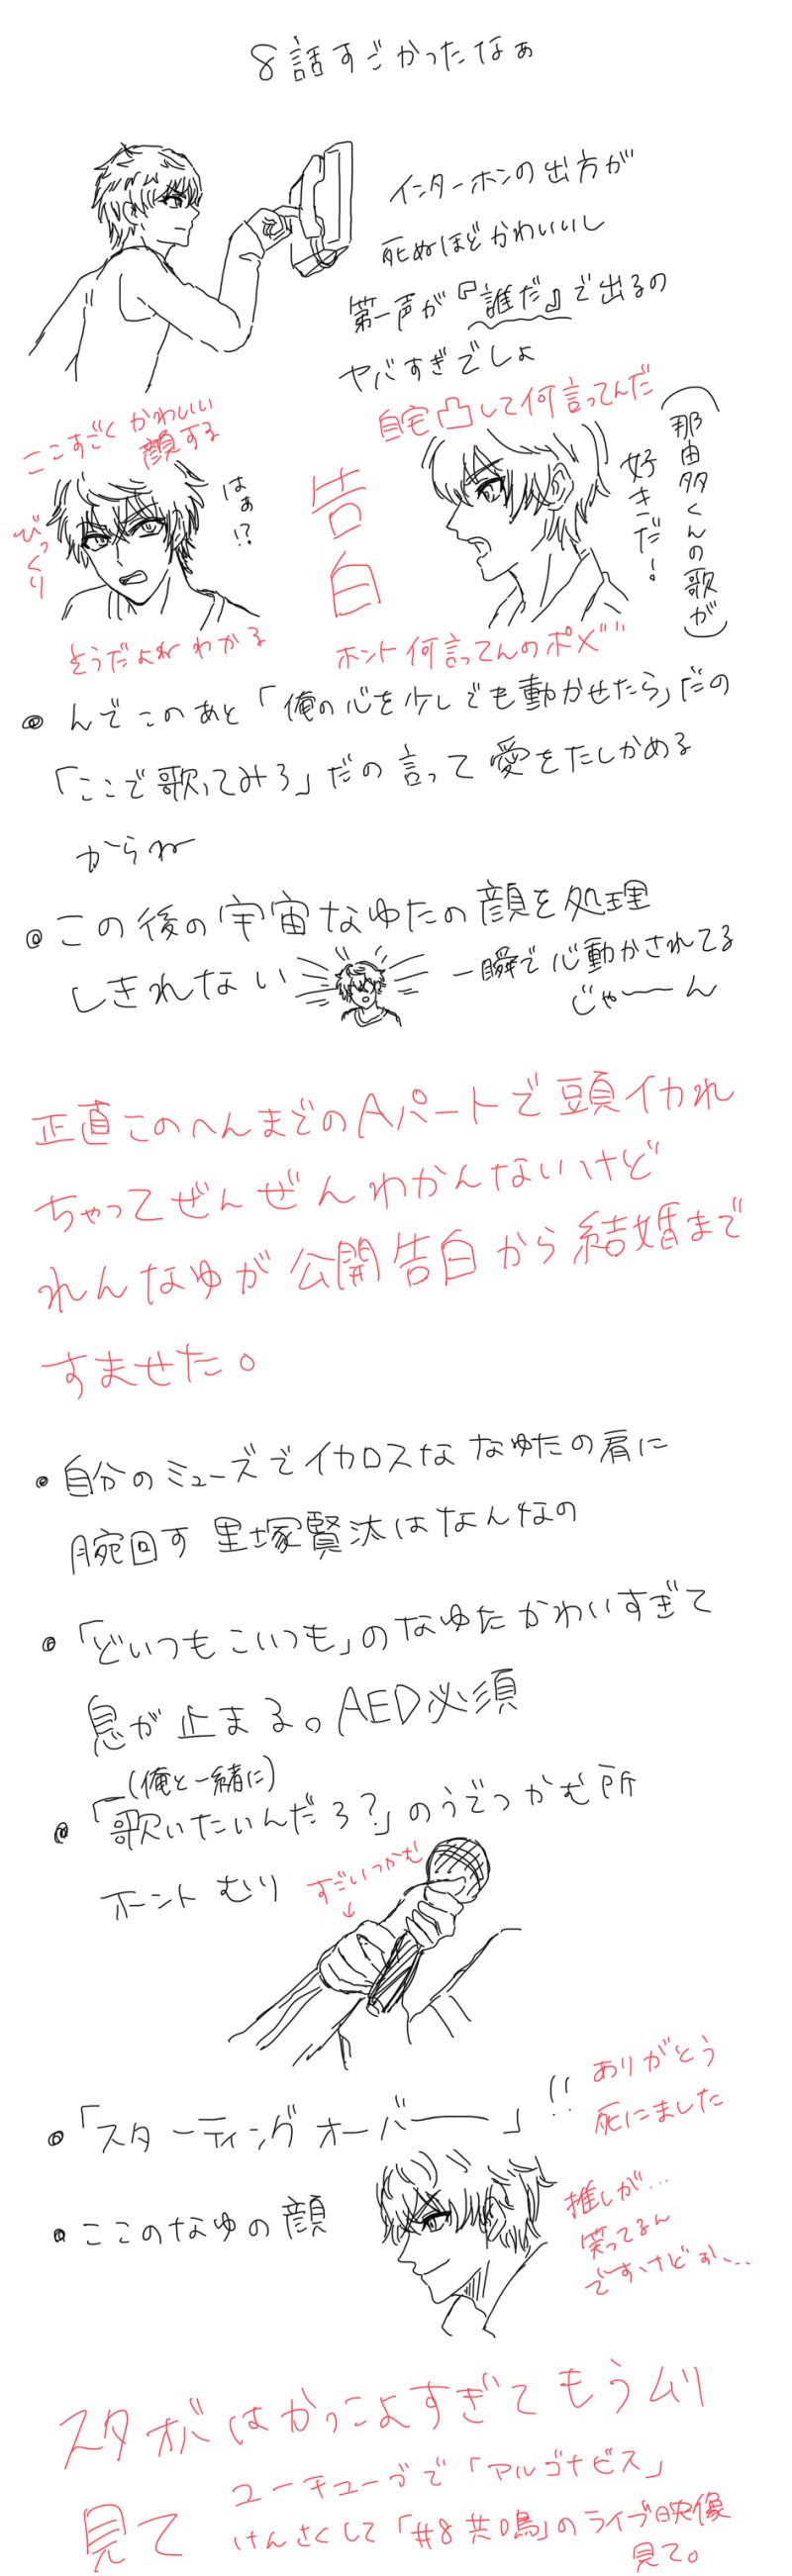 8話すごかったなぁ
インターホンの出方が
死ぬほどかわいいし
第一声が『誰だ』で出るの
ヤバすぎでしょ
ここすごくかわいい
顔する
はぁ!?
びっくり
そうだよねわかる
自宅凸して何言ってんだ
告白
(那由多くんの歌が)
好きだ!
ホント何言ってんのポメ゛
んでこのあと「俺の心を少しでも動かせたら」だの
「ここで歌ってみろ」だの言って愛をたしかめる
からね
この後の宇宙なゆたの顔を処理
しきれない
一瞬で心動かされてる
じゃーーん
正直このへんまでのAパートで頭イカれ
ちゃってぜんぜんわかんないけど
れんなゆが公開告白から結婚まで
すませた。
・自分のミューズでイカロスななゆたの肩に
腕回す里塚賢汰はなんなの
・「どいつもこいつも」のなゆたかわいすぎて
息が止まる。AED必須
(俺と一緒に)
・「歌いたいんだろ?」のうでつかむ所
ホントむり
すごいつかむ
↓
・「スターティングオーバーー」!!
ありがとう
死にました
・ここのなゆの顔
推しが…
笑ってるん
ですけどぉ…
スタオバはかっこよすぎてもうムリ
見て
ユーチューブで「アルゴナビス」
けんさくして「#8共鳴」のライブ映像
見て。